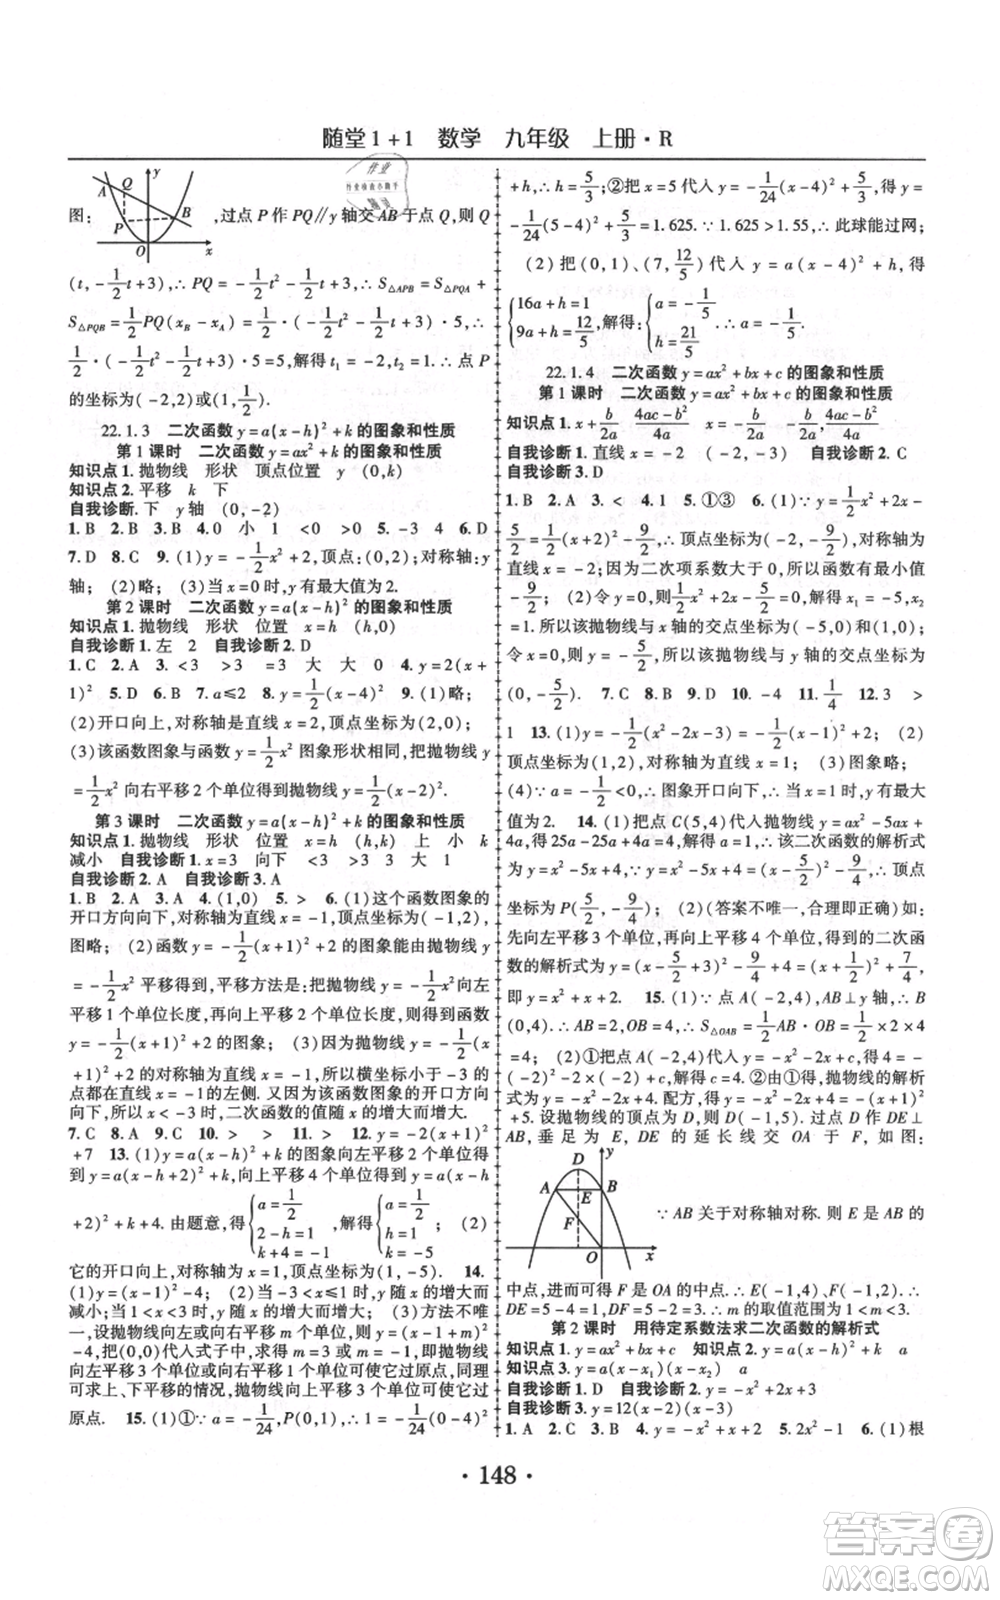 随堂1+1 数学 九年级 上册·R
图: ,过点P作PQ∥y轴交AB于点Q,则Q
(t,-1/2t+3),∴PQ=-1/2t²-1/2t+3,∴S△APB=S△PQA+
S△PQB=1/2PQ(xB-xA)=1/2·(-1/2t²-1/2t+3)·5,∴
1/2·(-1/2t²-1/2t+3)·5=5,解得t₁=-2,t₂=1.∴点P
的坐标为(-2,2)或(1,1/2).
22.1.3 二次函数y=a(x-h)²+k的图象和性质
第1课时 二次函数y=ax²+k的图象和性质
知识点1.抛物线 形状 顶点位置 y (0,k)
知识点2.平移 k 下
自我诊断.下 y轴 (0,-2)
1.B 2.B 3.B 4.0 小 1 <0 >0 5.-3 4 6.D
7.D 8.C 9.(1)y=-1/2x²+2,顶点:(0,2);对称轴:y
轴; (2)略; (3)当x=0时,y有最大值为2.
第2课时 二次函数y=a(x-h)²的图象和性质
知识点1.抛物线 形状 位置 x=h (h,0)
自我诊断1.左 2 自我诊断2.D
1.C 2.A 3.<3 >3 =3 大 大 0 4.y=2(x+
1)² 5.D 6.D 7.a≤2 8.y=1/2(x-4)² 9.(1)略;
(2)开口向上,对称轴是直线x=2,顶点坐标为(2,0);
(3)该函数图象与函数y=1/2x²图象形状相同,把抛物线y
=1/2x²向右平移2个单位得到抛物线y=1/2(x-2)².
第3课时 二次函数y=a(x-h)²+k的图象和性质
知识点1.抛物线 形状 位置 x=h (h,k) 上 小 k
减小 自我诊断1.x=3 向下 <3 >3 3 大 1
自我诊断2.A 自我诊断3.A
1.B 2.A 3.A 4.(1,0) 5.> 6.(1)这个函数图象的
开口方向向下,对称轴为直线x=-1,顶点坐标为(-1,2),
图略; (2)函数y=-1/2(x+1)²+2的图象能由抛物线y
=-1/2x²平移得到,平移方法是:将抛物线y=-1/2x²先向左
平移1个单位长度,再向上平移2个单位长度,则得到函数
y=-1/2(x+1)²+2的图象; (3)因为抛物线y=-1/2(x
+1)²+2的对称轴为直线x=-1,所以横坐标x<-3的
点都在直线x=-1的左侧.又因为该函数图象的开口方向
向下,所以x<-3时,二次函数的值随x的增大而增大.
7.C 8.A 9.C 10.> > 11.> 12.y=-2(x+1)²
+7 13.(1)y=a(x+h)²+k的图象向左平移2个单位得
到y=a(x+h+2)²+k,向上平移4个单位得到y=a(x+h
+2)²+k+4.由题意,得{a=1/2 2-h=1 k+4=-1 ,解得{a=1/2 h=1 k=-5; (2)
它的开口向上,对称轴为x=1,顶点坐标为(1,-5). 14.
(1)y=(x-1)²-4; (2)当-3<x≤1时,y随x的增大而
减小;当x>1时,y随x的增大而增大; (3)方法不唯
一,设抛物线向左或向右平移m个单位,y=(x-1-m)²
-4,把(0,0)代入式子中,求得m=3或m=-1,故抛物线
向左平移3个单位或向右平移1个单位可使它过原点,同理
可求上、下平移的情况,抛物线向上平移3个单位可使它过
原点. 15.(1)①∵a=-1/24,P(0,1),∴1=-1/24(0-4)²
+h,∴h=5/3;②把x=5代入y=-1/24(x-4)²+5/3,得y=
-1/24(5-4)²+5/3=1.625.∵1.625>1.55,∴此球能过网;
(2)把(0,1)、(7,12/5)代入y=a(x-4)²+h,得
{16a+h=1 9a+h=12/5,解得:{a=-1/5 h=21/5.∴a=-1/5.
22.1.4 二次函数y=ax²+bx+c的图象和性质
第1课时 二次函数y=ax²+bx+c的图象和性质
知识点1.x+b/2a (4ac-b²)/4a x=-b/2a (-b/2a,(4ac-b²)/4a)
自我诊断1.直线x=-2 (-2,-3) 自我诊断2.C
自我诊断3.D
1.B 2.A 3.< 4.1 5.①③ 6.(1)∵y=1/2x²+2x-
5/2=1/2(x+2)²-9/2,∴顶点坐标为(-2,-9/2),对称轴为
直线x=-2;因为二次项系数大于0,所以函数有最小值
-9/2; (2)令y=0,则1/2x²+2x-5/2=0,解得x₁=-5,x₂
=1.所以该抛物线与x轴的交点坐标为(-5,0),(1,0).
令x=0,则y=-5/2,所以该抛物线与y轴的交点坐标为
(0,-5/2) 7.C 8.B 9.D 10.-4 11.1/4 12.3 >
1 13.(1)y=-1/2(x²-2x-3)=-1/2(x-1)²+2; (2)
顶点坐标为(1,2),对称轴为直线x=1; (3)图象略;
(4)∵a=-1/2<0,∴图象开口向下,∴当x=1时,y的最大
值为2. 14.(1)把点C(5,4)代入抛物线y=ax²-5ax+
4a,得25a-25a+4a=4.解得a=1,∴该二次函数的解析式
为y=x²-5x+4.∵y=x²-5x+4=(x-5/2)²-9/4,∴顶点
坐标为P(5/2,-9/4); (2)(答案不唯一,合理即正确)如:
先向左平移3个单位,再向上平移4个单位,得到的二次函
数的解析式为y=(x-5/2+3)²-9/4+4=(x+1/2)²+7/4,
即y=x²+x+2. 15.(1)∵点A(-2,4),AB⊥y轴,∴B
(0,4),∴AB=2,OB=4,∴S△OAB=1/2AB·OB=1/2×2×4
=4; (2)①把点A(-2,4)代入y=-x²-2x+c中得:
-4+4+c=4,∴c=4,②∵y=-x²-2x+4=-(x+1)²
+5.设抛物线的顶点为D,则D(-1,5).过点D作DE⊥
AB,垂足为E,DE的延长线交OA于F,如图:
∵AB关于对称轴对称.则E是AB的
中点,进而可得F是OA的中点.∴E(-1,4)、F(-1,2).∴
DE=5-4=1,DF=5-2=3.∴m的取值范围为1<m<3.
第2课时 用待定系数法求二次函数的解析式
知识点1.y=ax²+bx+c 知识点2.y=a(x-h)²+k a
知识点3.y=a(x-x₁)(x-x₂) a
自我诊断1.D 自我诊断2.y=-x²+2x+3
自我诊断3.y=12(x-2)(x-3)
·148·
答案卷